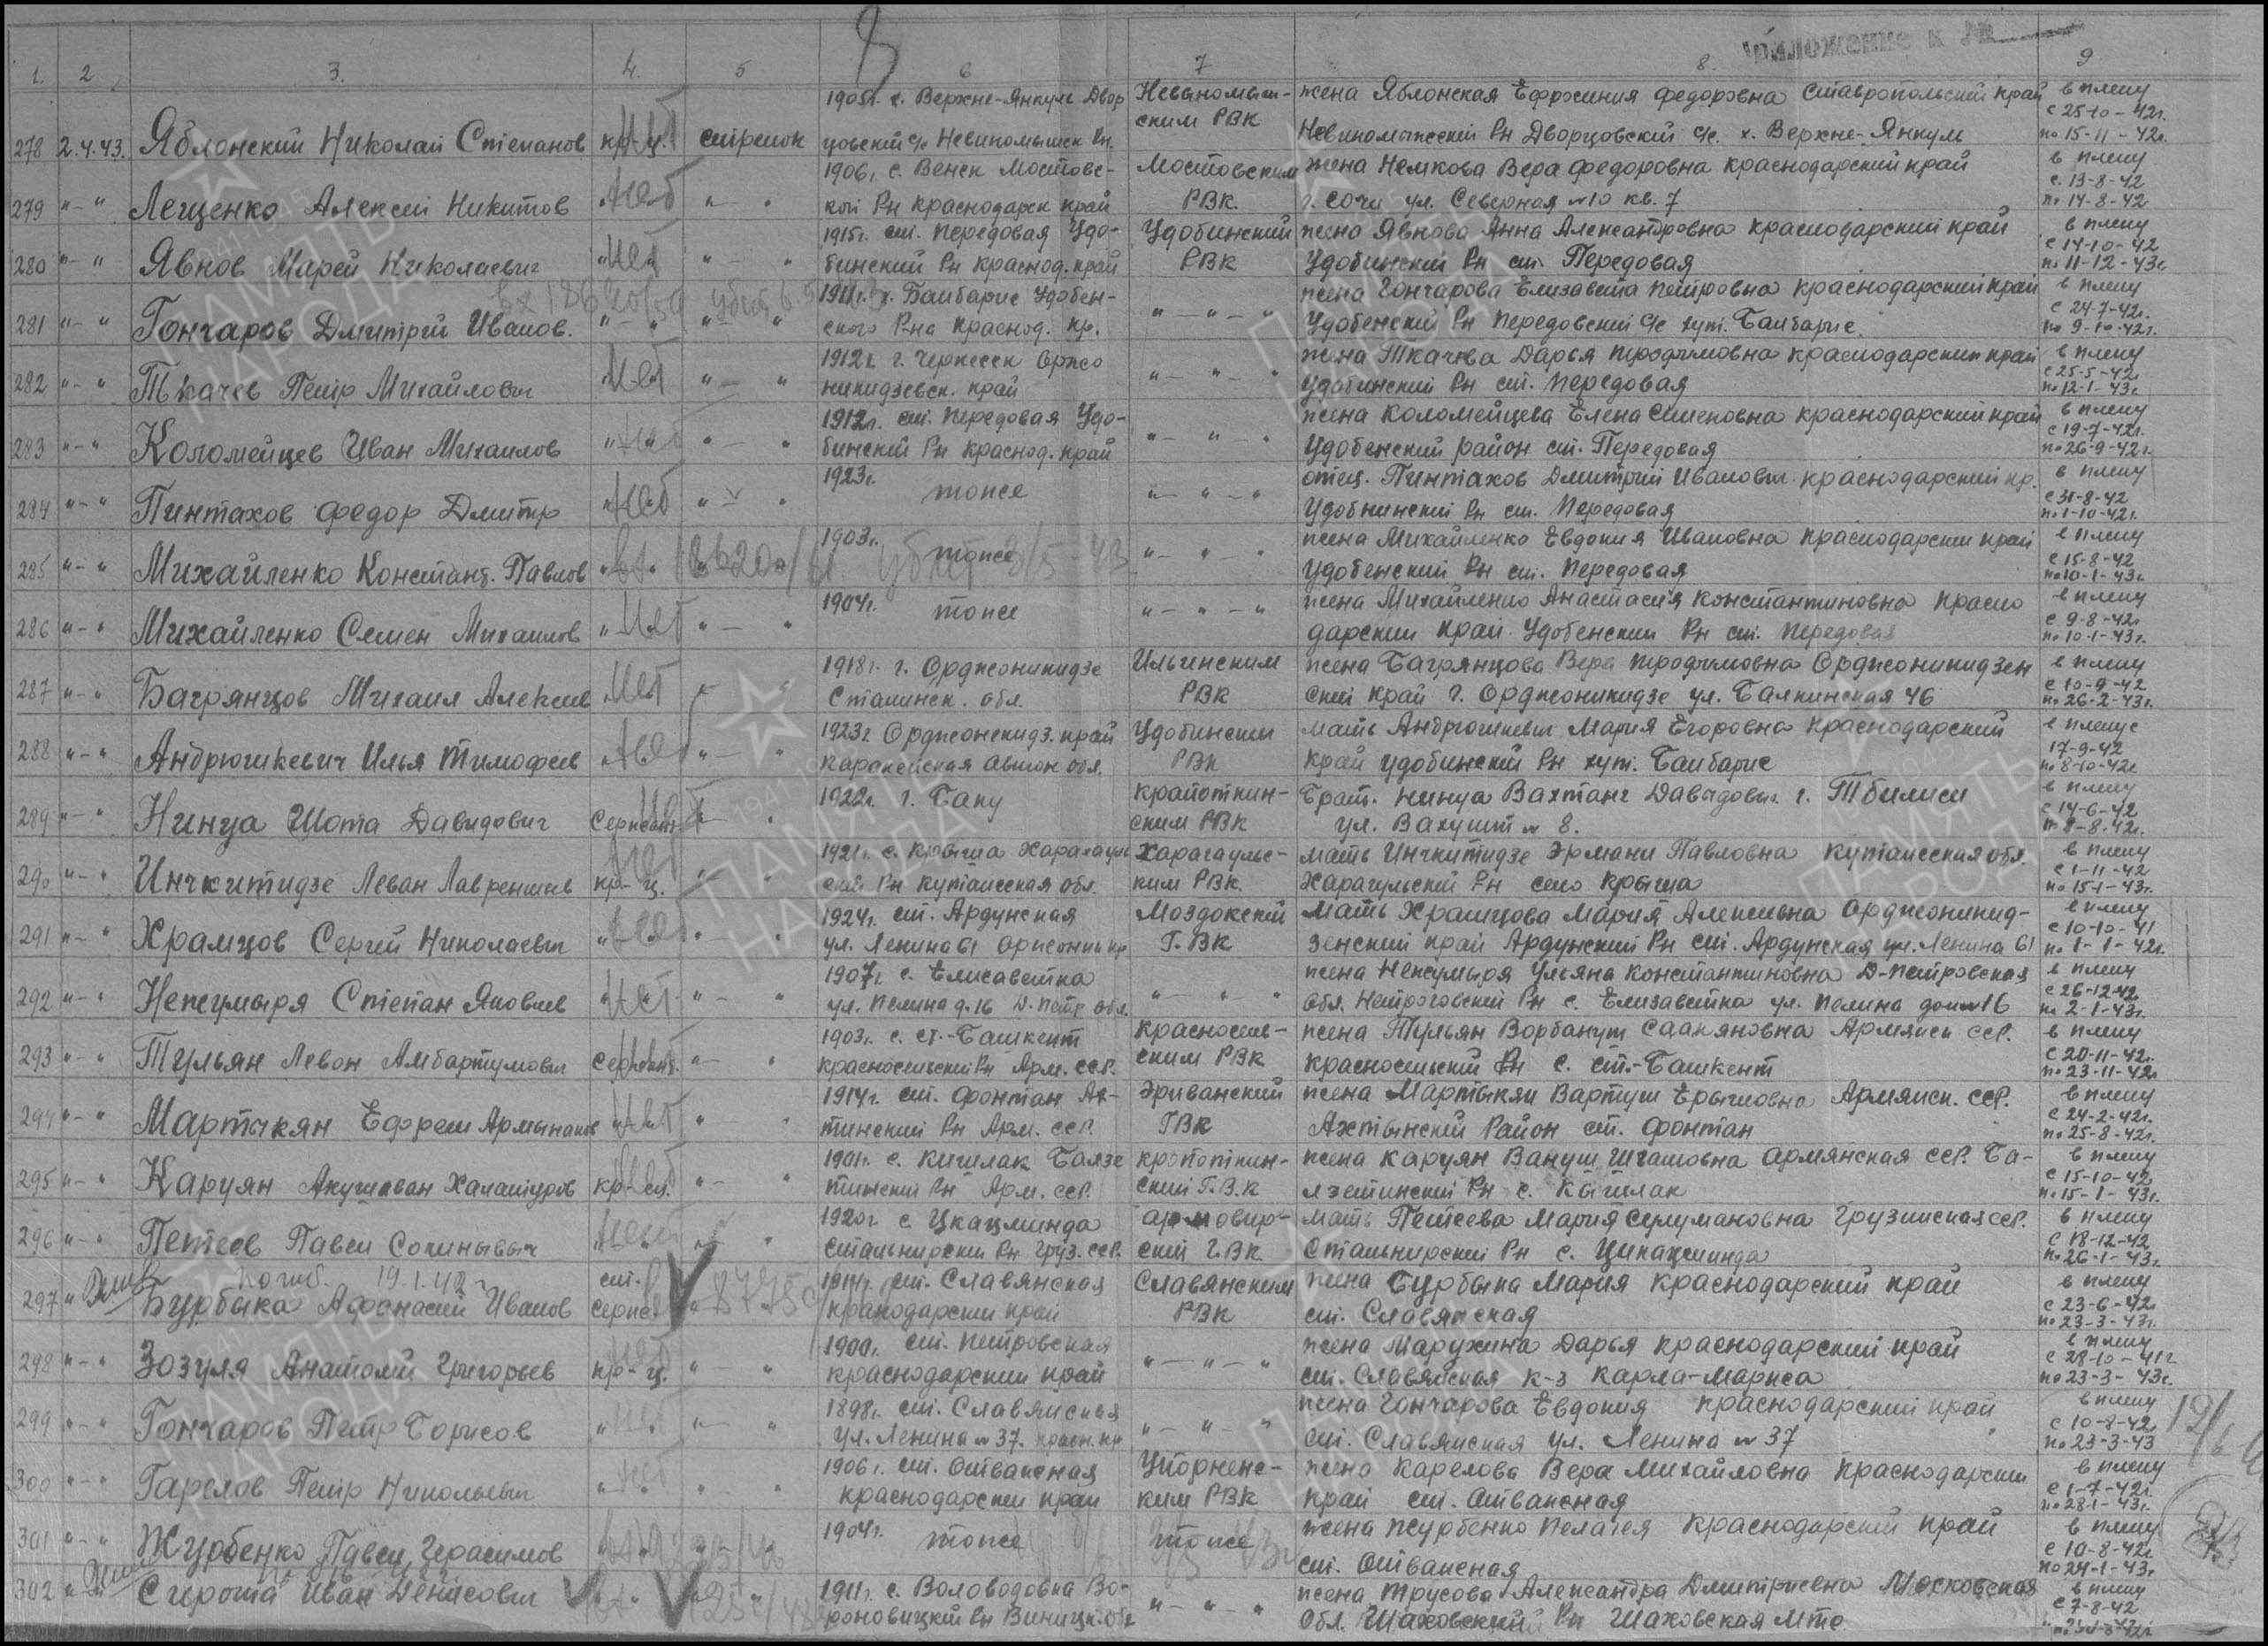 Приложение к №
1. 2 3. 4. 5 6 7 8. 9
278 2.4.43. Яблонский Николай Степанов кр-ц. стрелок 1905г. с. Верхне-Янкуль Двор Невыномысс- жена Яблонская Ефросиния Федоровна Ставропольский край в плену
цовский с/с Невиномысск Рн. ским РВК Невиномысский Рн Дворцовский с/с. х. Верхне-Янкуль с 25-10-42г. по 15-11-42г.
279 "-" Лещенко Алексей Никитов Нет "-" 1906г. с. Венск Мостовс- Мостовским жена Немкова Вера Федоровна Краснодарский край в плену
кой Рн Краснодарск край РВК. г. Сочи ул. Северная №10 кв. 7 с. 13-8-42 по 14-8-42
280 "-" Явнов Марей Николаевич Нет "-" 1915г. ст. Передовая Удо- Удобинский жена Явнова Анна Александровна Краснодарский край в плену
бинский Рн Краснод. край РВК Удобинский Рн ст. Передовая с 14-10-42 по 11-12-43г
281 "-" Гончаров Дмитрий Иванов. "-" "-" 1911г. х. Баибарис Удобен- "-"-" жена Гончарова Елизавета Петровна Краснодарский край в плену
ского Р-на Краснод. кр. Удобенский Рн Передовский с/с хут. Баибарис. с 24-7-42г. по 9-10-42г.
282 "-" Ткачев Петр Михайлович Нет "-" 1912г. г. Черкесск Орджо "-"-" жена Ткачева Дарья Трофимовна Краснодарский край в плену
никидзевск. край Удобинский Рн ст. Передовая с 25-5-42г по 12-1-43г.
283 "-" Коломейцев Иван Михаилов "-" "-" 1912г. ст. Передовая Удо- "-"-" жена Коломейцева Елена Семеновна Краснодарский край в плену
бинский Рн Краснод. край Удобенский район ст. Передовая с 19-7-42г. по 26-9-42г.
284 "-" Пинтахов Федор Дмитр Нет "-" 1923г. тоже "-"-" отец. Пинтахов Дмитрий Иванович Краснодарский кр. в плену
Удобнинский Рн ст. Передовая с 31-8-42 по 1-10-42г.
285 "-" Михайленко Констант. Павлов 1903г. тоже убит 3/5-43 "-"-" жена Михайленко Евдокия Ивановна Краснодарский край в плену
Удобенский Рн ст. Передовая с 15-8-42 по 10-1-43г.
286 "-" Михайленко Семен Михаилов Нет "-" 1904г. тоже "-"-" жена Михайленко Анастасия Константиновна Красно в плену
дарский край Удобенский Рн ст. Передовая с 9-8-42г по 10-1-43г.
287 "-" Багрянцов Михаил Алексеев Нет 1918г. г. Орджоникидзе Ильинским жена Багрянцова Вера Трофимовна Орджоникидзен в плену
Сталинск. обл. РВК ский край г. Орджоникидзе ул. Балкинская 46 с 10-9-42 по 26-2-43г.
288 "-" Андрюшкевич Илья Тимофеев Нет "-" 1923г Орджоникидз. край Удобинским мать Андрюшкевич Мария Егоровна Краснодарский в плену
Каракейская автон обл. РВК край Удобинский Рн хут. Баибарис 17-9-42 по 8-10-42г
289 "-" Нинуа Шота Давидович Сержант "-" 1922г. г. Баку Крапоткин- Брат. Нинуа Вахтанг Давыдович г. Тбилиси в плену
ским РВК ул. Вахушт № 8. с 14-6-42 по 8-8-42г.
290 "-" Инчкитидзе Леван Лаврентьев кр-ц. 1921г. с. Крвыша Харагауль Харагаульс- мать Инчкитидзе Эрмани Павловна Кутаисская обл. в плену
ский Рн Кутаисская обл. ким РВК. Харагульский Рн село Крыша с 1-11-42 по 15-1-43г.
291 "-" Храмцов Сергей Николаевич "-" 1924г. ст. Ардунская Моздокский мать Храмцова Мария Алексеевна Орджоникид- в плену
ул. Ленина 61 Г. ВК зенский край Ардунский Рн ст. Ардунская ул. Ленина 61 с 10-10-41 по 1-1-42г.
292 "-" Нежумыря Степан Яковлев Нет "-" 1907г. с. Елисаветка "-"-" жена Нежумыря Ульяна Константиновна Д-Петровская в плену
ул. Ленина д. 16 Д. Петр обл. обл. Рн с. Елизаветка ул. Ленина дом №16 с 26-12-42 по 2-1-43г.
293 "-" Тульян Левон Амбартумович Сержант. "-" 1903г. с. ст.-Башкент Красносель- жена Тульян Ворбанут Саакяновна Армянск ССР. в плену
Красносельский Рн Арм. ССР. ским РВК Красносельский Рн с. ст.-Башкент с 20-11-42г. по 23-11-42г
294 "-" Мартыкян Ефрем Нет " 1914г. ст. Фонтан Ах- Эриванский жена Мартыкян Вартуш Армянск. ССР. в плену
тинский Рн Арм. ССР. ГВК Ахтынский Район ст. Фонтан с 24-2-42г. по 25-8-42г.
295 "-" Каруян кр-ц. "-" 1901г. с. Кишлак Баязе Кропоткин- жена Каруян Вануш Армянская ССР. Ба- в плену
тинский Рн Арм. ССР. ский Г.В.К язетинский Рн с. Кышлак с 15-10-42 по 15-1-43г.
296 "-" Петеев Павел 1920г с. Цкацминда Армовир- мать Петеева Мария Сулумановна Грузинская ССР. в плену
Стальнирский Рн. Груз. ССР. ский Г.ВК Стальнирский Рн с. с 18-12-42 по 26-1-43г.
погиб. 19.1.42г
297 " Бурбыка Афонасий Иванов ст. серж. 1914г. ст. Славянская Славянским жена Бурбыка Мария Краснодарский край в плену
Краснодарский край РВК ст. Славянская с 23-6-42г по 23-3-43г.
298 "-" Зозуля Анатолий Григорьев кр-ц. "-" 1900г. ст. Петровская "-"-" жена Маружина Дарья Краснодарский край в плену
Краснодарский край ст. Славянская к-з Карла-Маркса с 28-10-41г по 23-3-43г.
299 "-" Гончаров Петр Борисов Нет "-" 1898г. ст. Славянская "-"-" жена Гончарова Евдокия Краснодарский край в плену
ул. Ленина №37. Красн. кр ст. Славянская ул. Ленина №37 с 10-8-42г по 23-3-43
300 "-" Гарелов Петр Никольевич Нет 1906г. ст. Отважная Упорненс- жена Карелова Вера Михайловна Краснодарский в плену
Краснодарский край ким РВК край ст. Отважная с 1-7-42г. по 28-1-43г.
301 "-" Журбенко Павел Герасимов "-" 1904г. тоже тоже жена Журбенко Пелагея Краснодарский край в плену
ст. Отважная с 10-8-42г по 24-1-43г.
302 " Сирота Иван Денисович 1911г. с. Воловодовка Во- "-"-" жена Трусова Александра Дмитриевна Московская в плену
роновицкий Рн Виницк. обл обл. Шаховский Рн Шаховская мтс с 7-8-42
ПАМЯТЬ НАРОДА